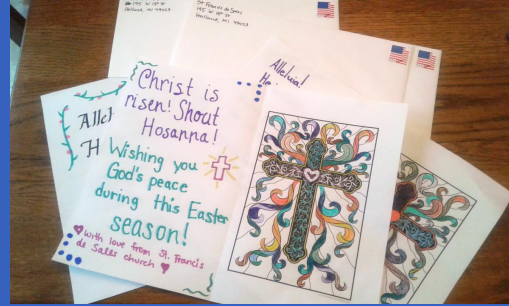 195 W 13th St
Holland, MI 49423
St Francis de Sales
195 W 13th St
Holland, MI 49423
Alleluia!
He
Allel
H
Christ is
risen! Shout
Hosanna!
Wishing you
God's peace
during this Easter
season!
with love from St. Francis
de Sales church